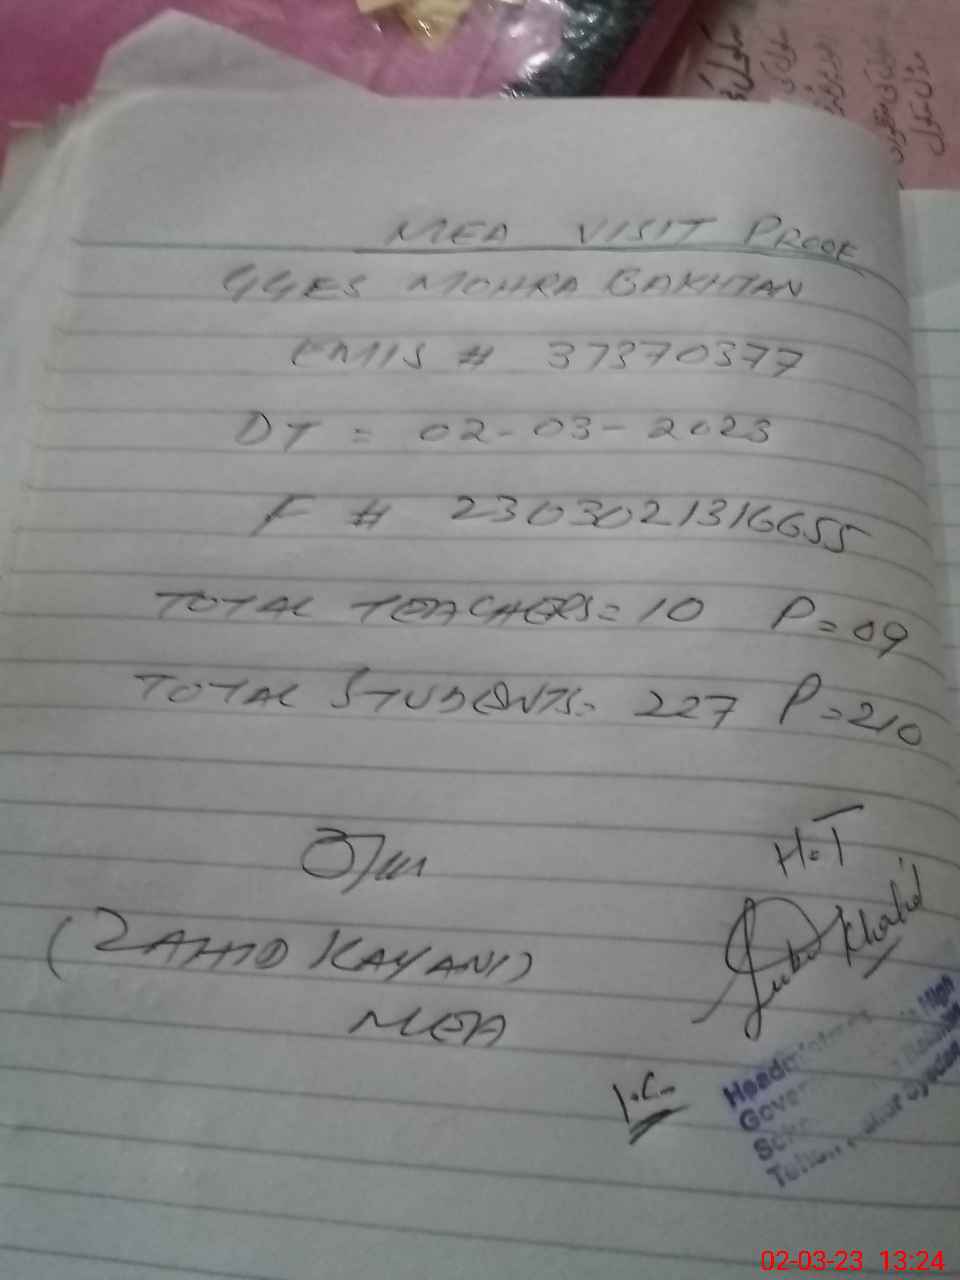 MEA VISIT PROOF
GGES MOHRA BAKHTAN
EMIS # 37370377
DT = 02-03-2023
F # 2303021316655
TOTAL TEACHERS= 10 P=09
TOTAL STUDENTS= 227 P=210
H.T
Khalid
(ZAHID KAYANI)
MEA
I.C
High
Tehsil
02-03-23 13:24